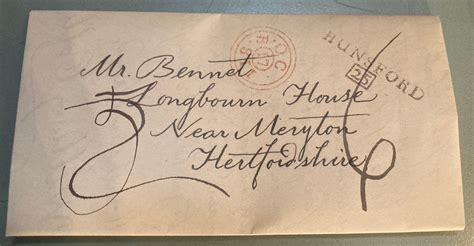 HUNSFORD
25
Mr. Bennet
Longbourn House
Near Meryton
Hertfordshire